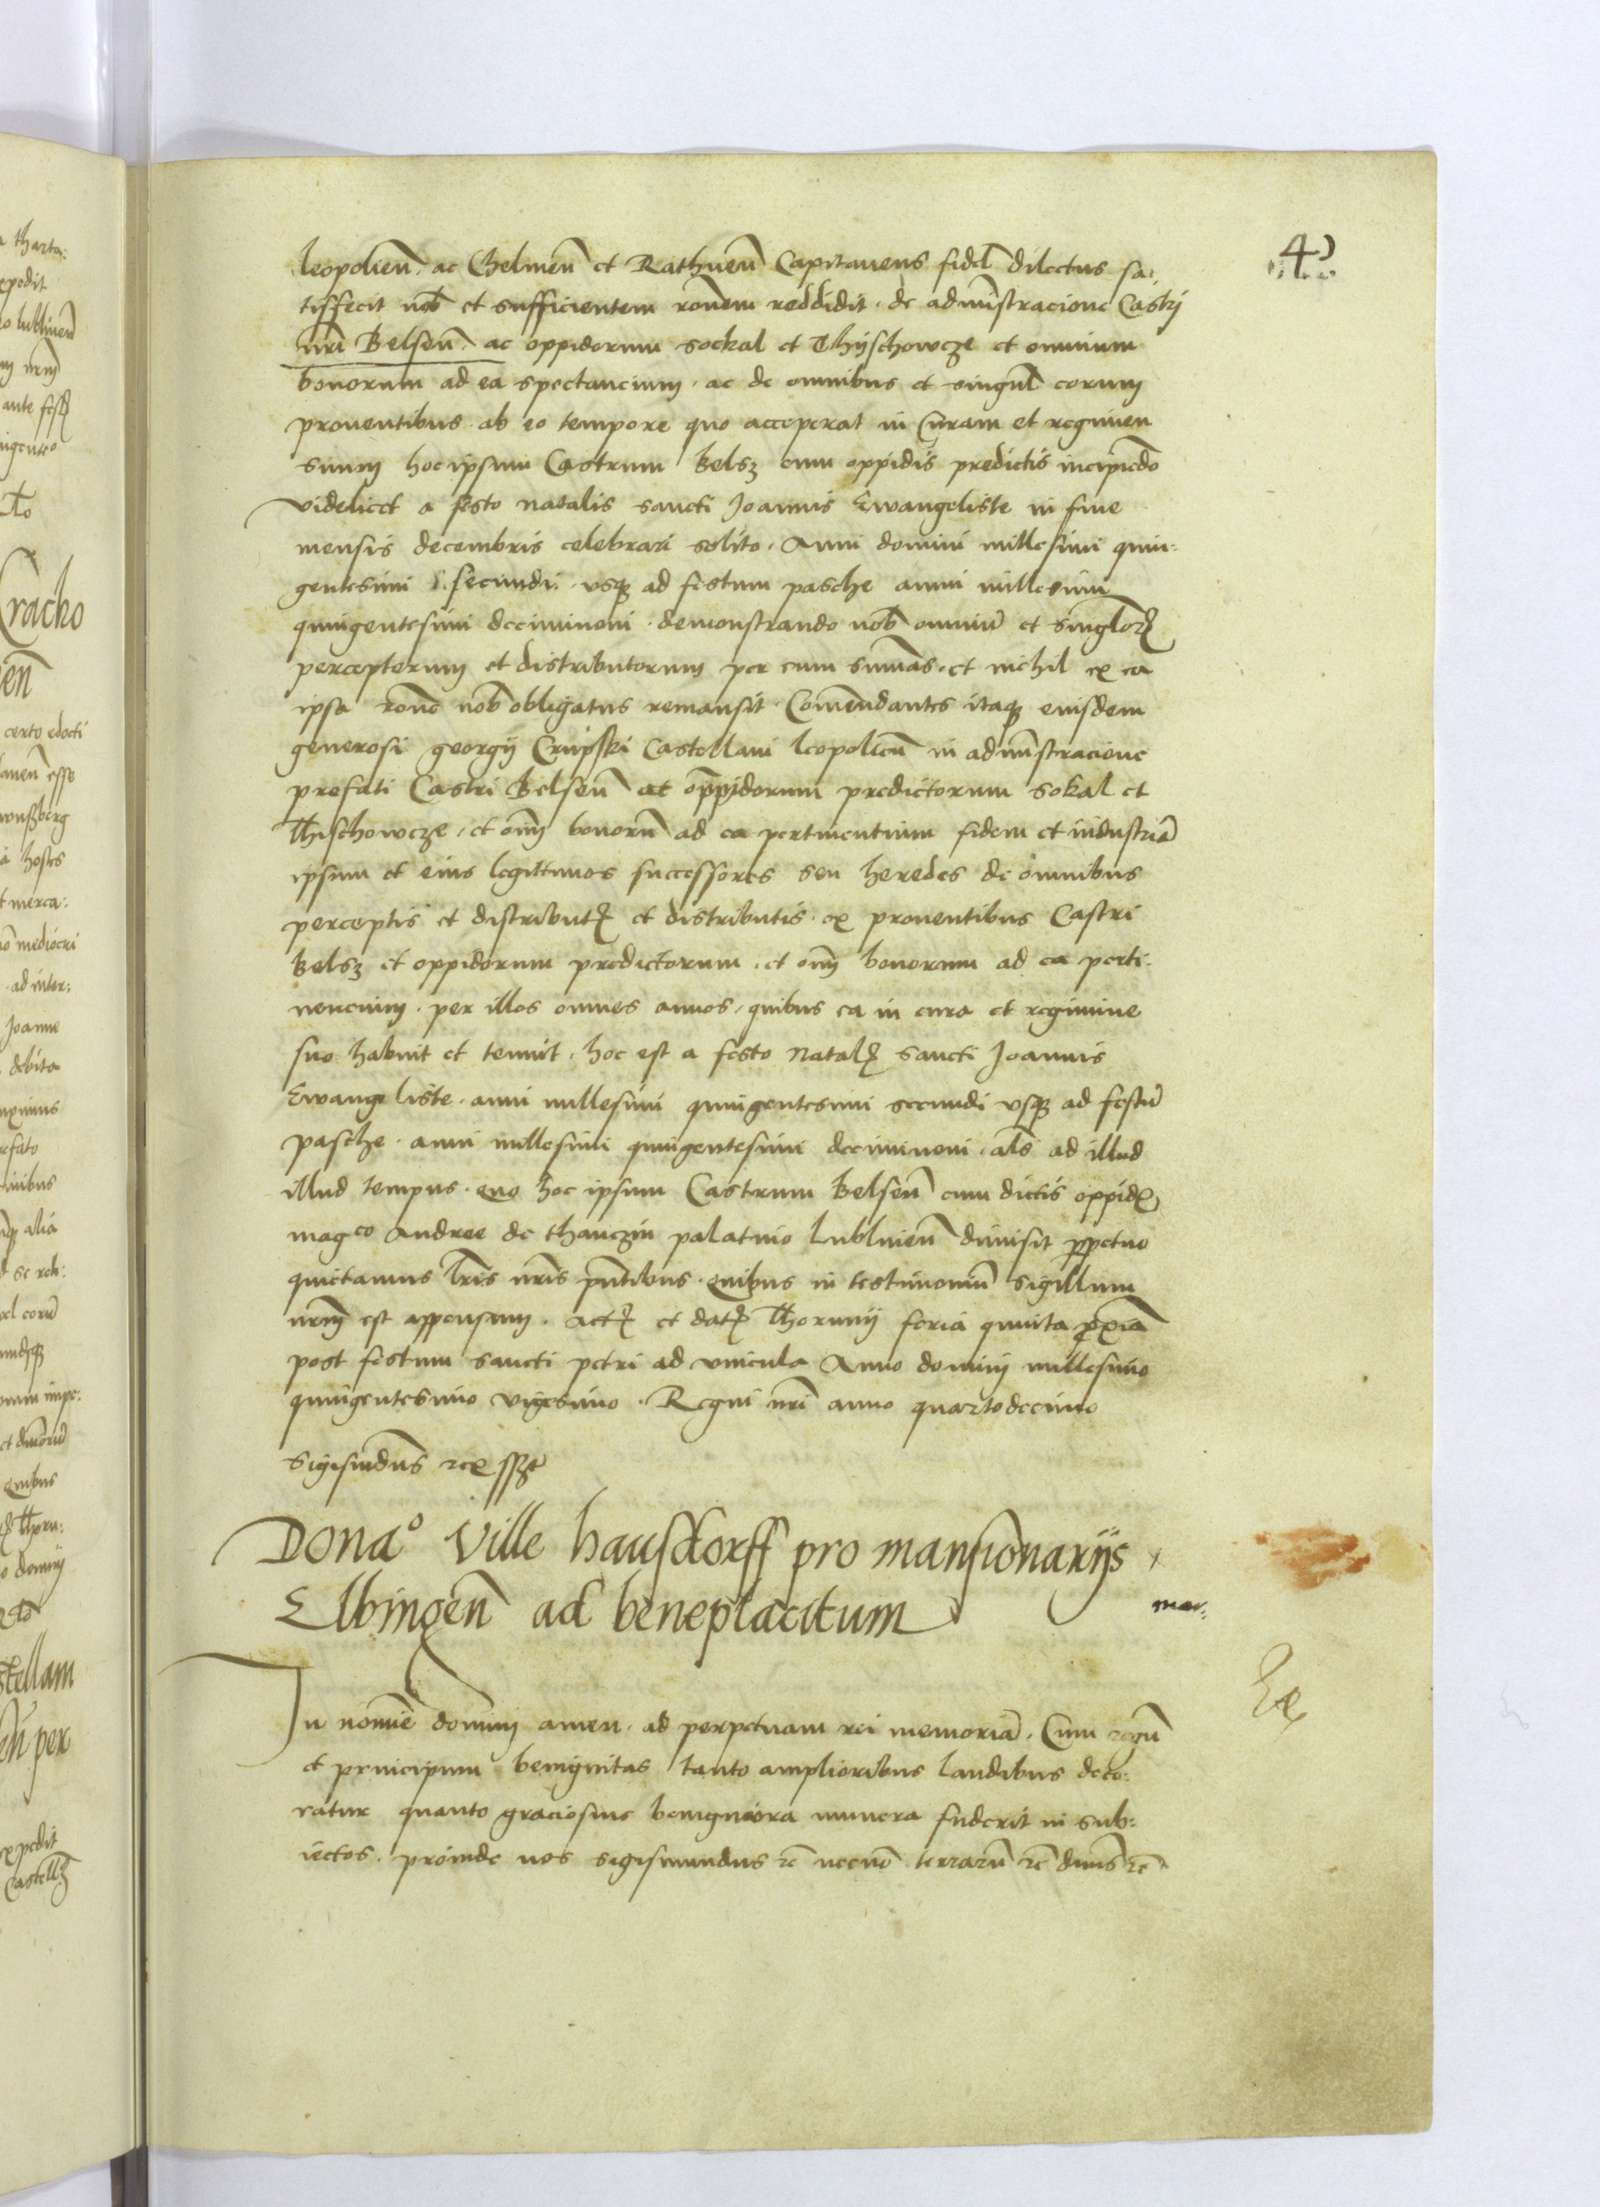 42
leopolien̄. ac Chelmen̄ et Rathnen̄ Capitaneus fidel̄ dilectus sa-
tisfecit nob̄ et sufficientem ronem reddidit. de administracione Castri
nr̄i Belsen̄. ac oppidorum sockal et Thyschowcze et omnium
bonorum ad ea spectancium. ac de omnibus et singul̄ eorum
prouentibus. ab eo tempore quo acceperat in Curam et regimen
suum hoc ipsum Castrum Belsz cum oppidis predictis incipiēdo
videlicet a festo natalis sancti Joannis Ewangeliste in fine
mensis decembris celebrari solito. Anni domini millesimi quin-
gentesimi secundi. vsq̄ ad festum pasche anni millesimi
quingentesimi deciminoni. demonstrando nob̄ omniū et singlor̄
perceptorum et distributorum per eum summas. et nichil ex ea
ipsa rone nob̄ obligatus remansit. Comendantes itaq̄ eiusdem
generosi georgij Crupski Castellani leopolien̄ in administracione
prefati Castri Belsen̄ et oppidorum predictorum sokal et
Thischowcze, et om̄ bonorū ad ea pertinentium fidem et industriā
ipsum et eius legittimos successores seu heredes de omnibus
perceptis et distribut̄ et distributis ex prouentibus Castri
Belsz et oppidorum predictorum. et om̄ bonorum ad ea perti-
nencium. per illos omnes annos, quibus ea in cura et regimine
suo habuit et tenuit. hoc est a festo Natal̄ sancti Joannis
Ewangeliste. anni millesimi quingentesimi secundi vsq̄ ad festū
pasche. anni millesimi quingentesimi deciminoni. als̄ ad illud
illud tempus. quo hoc ipsum Castrum Belsen̄ cum dictis oppid̄
mag͞co Andree de thanczin palatino lublinen̄ dimisit ꝑpetuo
quictamus lr̄is nr̄is pn̄tibus. quibus in testimoniū sigillum
nr̄m est appensum. Act̄ et dat̄ Thorunij feria quinta ꝓxia
post festum sancti petri ad vincula Anno domini millesimo
quingentesimo vigesimo. Regni nr̄i anno quartodecimo
Sigismūdus rex sszt
Dona° Ville hausdorff pro mansionarijs
Elbingen̄ ad beneplacitum
In nomīe domini amen. ad perpetuam rei memoriā. Cum regū
et principum benignitas tanto amplioribus laudibus deco-
ratur quanto graciosius benigniora munera fuderit in sub-
iectos. proinde nos sigismundus rc̄ necnō terrarū rc̄ dn̄us rc̄